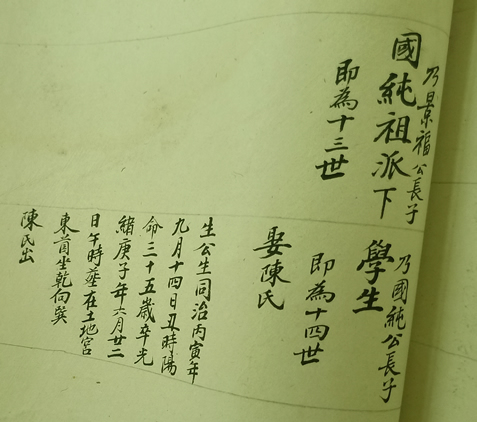 乃景福公長子
國純祖派下
即為十三世
乃國純公長子
學生
即為十四世
娶陳氏
生公生同治丙寅年
九月十四日丑時陽
命三十五歲卒光
緒庚子年六月廿二
日午時葬在土地宮
東首坐乾向巽
陳氏出